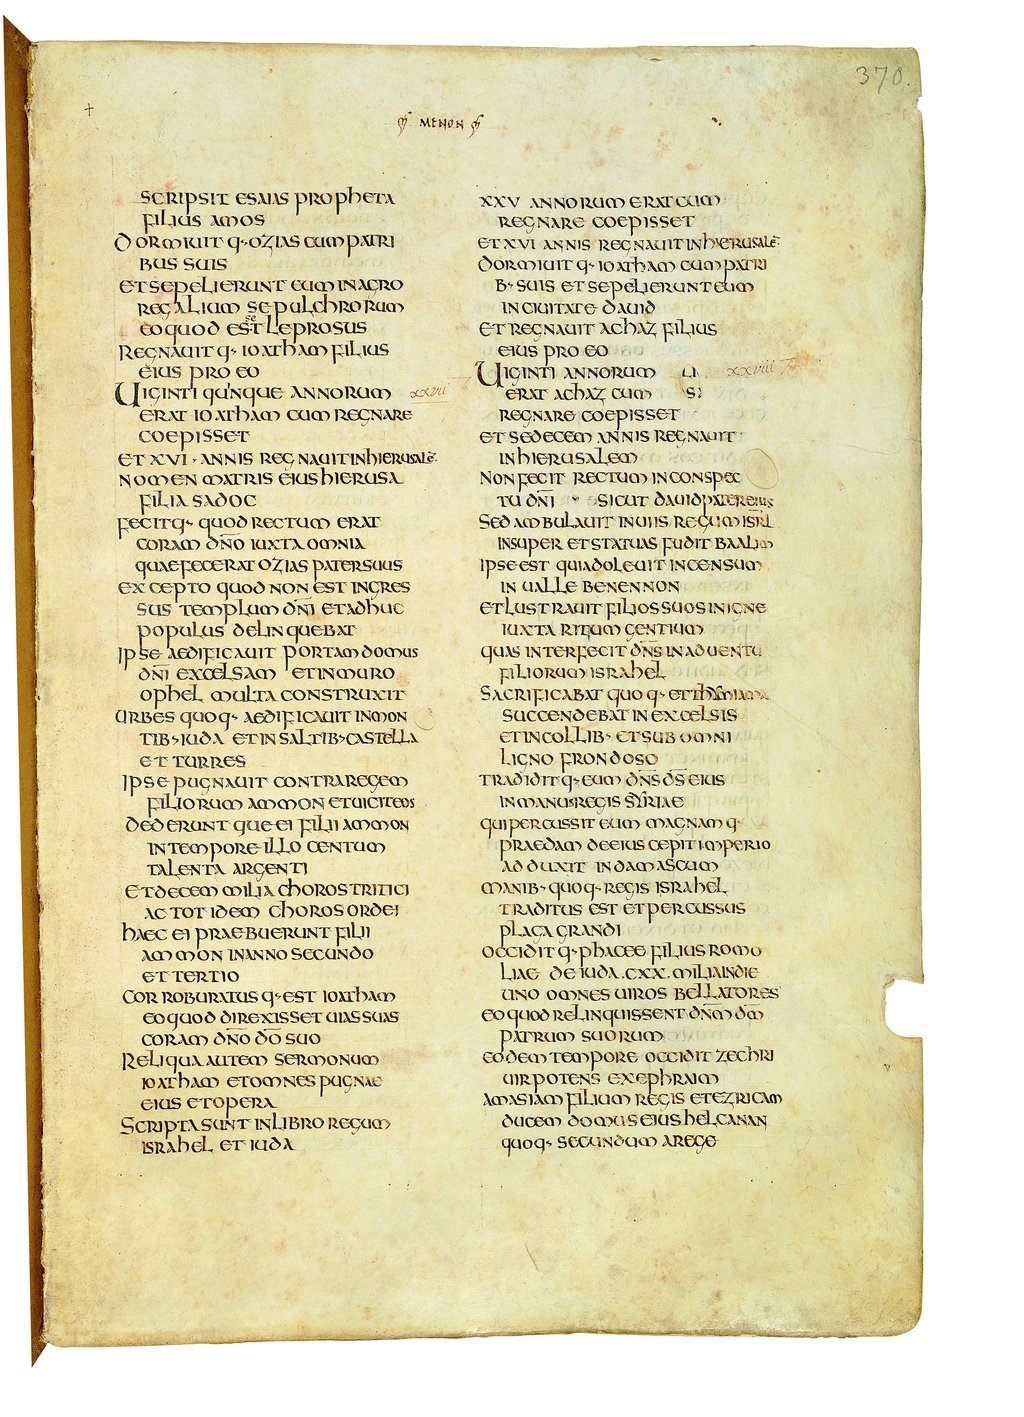 370.
MENON
SCRIPSIT ESAIAS PROPHETA
FILIUS AMOS
DORMIUIT Q· OZIAS CUM PATRI
BUS SUIS
ET SEPELIERUNT EUM IN AGRO
REGALIUM SEPULCHRORUM
EO QUOD ESSET LEPROSUS
REGNAUIT Q· IOATHAM FILIUS
EIUS PRO EO
UIGINTI QUINQUE ANNORUM XXVII
ERAT IOATHAM CUM REGNARE
COEPISSET
ET XVI · ANNIS REGNAUIT IN HIERUSALĒ·
NOMEN MATRIS EIUS HIERUSA
FILIA SADOC
FECIT Q· QUOD RECTUM ERAT
CORAM DN̅O IUXTA OMNIA
QUAE FECERAT OZIAS PATER SUUS
EXCEPTO QUOD NON EST INGRES
SUS TEMPLUM DN̅I ET ADHUC
POPULUS DELINQUEBAT
IPSE AEDIFICAUIT PORTAM DOMUS
DN̅I EXCELSAM ET IN MURO
OPHEL MULTA CONSTRUXIT
URBES QUOQ· AEDIFICAUIT IN MON
TIB· IUDA ET IN SALTIB· CASTELLA
ET TURRES
IPSE PUGNAUIT CONTRA REGEM
FILIORUM AMMON ET UICIT EOS
DEDERUNT QUE EI FILII AMMON
IN TEMPORE ILLO CENTUM
TALENTA ARGENTI
ET DECEM MILIA CHOROS TRITICI
AC TOTIDEM CHOROS ORDEI
HAEC EI PRAEBUERUNT FILII
AMMON IN ANNO SECUNDO
ET TERTIO
CORROBURATUS Q· EST IOATHAM
EO QUOD DIREXISSET UIAS SUAS
CORAM DN̅O DO̅ SUO
RELIQUA AUTEM SERMONUM
IOATHAM ET OMNES PUGNAE
EIUS ET OPERA
SCRIPTA SUNT IN LIBRO REGUM
ISRAHEL ET IUDA
XXV ANNORUM ERAT CUM
REGNARE COEPISSET
ET XVI ANNIS REGNAUIT IN HIERUSALĒ·
DORMIUIT Q· IOATHAM CUM PATRI
B· SUIS ET SEPELIERUNT EUM
IN CIUITATE DAUID
ET REGNAUIT ACHAZ FILIUS
EIUS PRO EO
UIGINTI ANNORUM XXVIII
ERAT ACHAZ CUM
REGNARE COEPISSET
ET SEDECEM ANNIS REGNAUIT
IN HIERUSALEM
NON FECIT RECTUM IN CONSPEC
TU DN̅I SICUT DAUID PATER EIUS
SED AMBULAUIT IN UIIS REGUM ISR̅L
INSUPER ET STATUAS FUDIT BAALIM
IPSE EST QUI ADOLEUIT INCENSUM
IN UALLE BENENNON
ET LUSTRAUIT FILIOS SUOS IN IGNE
IUXTA RITUM GENTIUM
QUAS INTERFECIT DN̅S IN ADUENTU
FILIORUM ISRAHEL
SACRIFICABAT QUOQ· ET THYMIAMA
SUCCENDEBAT IN EXCELSIS
ET IN COLLIB· ET SUB OMNI
LIGNO FRONDOSO
TRADIDIT Q· EUM DN̅S DS̅ EIUS
IN MANUS REGIS SYRIAE
QUI PERCUSSIT EUM MAGNAM Q·
PRAEDAM DE EIUS CEPIT IMPERIO
ADDUXIT IN DAMASCUM
MANIB· QUOQ· REGIS ISRAHEL
TRADITUS EST ET PERCUSSUS
PLAGA GRANDI
OCCIDIT Q· PHACEE FILIUS ROMO
LIAE DE IUDA .CXX. MILIA IN DIE
UNO OMNES UIROS BELLATORES
EO QUOD RELINQUISSENT DN̅M DM̅
PATRUM SUORUM
EODEM TEMPORE OCCIDIT ZECHRI
UIR POTENS EX EPHRAIM
AMASIAM FILIUM REGIS ET EZRICAM
DUCEM DOMUS EIUS HELCANAN
QUOQ· SECUNDUM A REGE